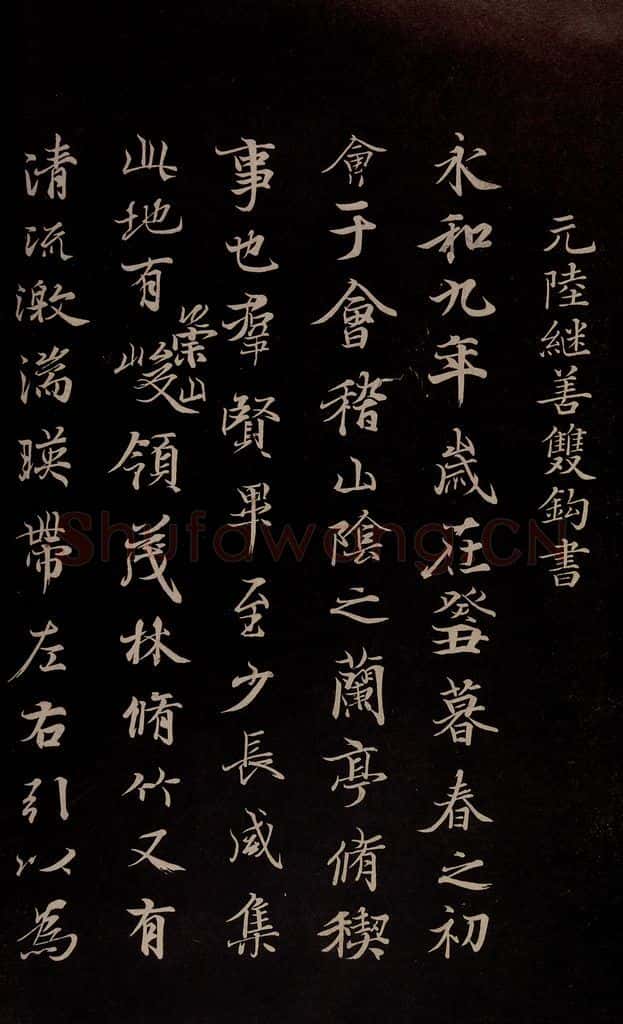 元陸継善雙鈎書
永和九年歲在癸丑暮春之初
會于會稽山陰之蘭亭脩稧
事也羣賢畢至少長咸集
此地有崇山峻領茂林脩竹又有
清流激湍暎帶左右引以為
Shufawang.CN